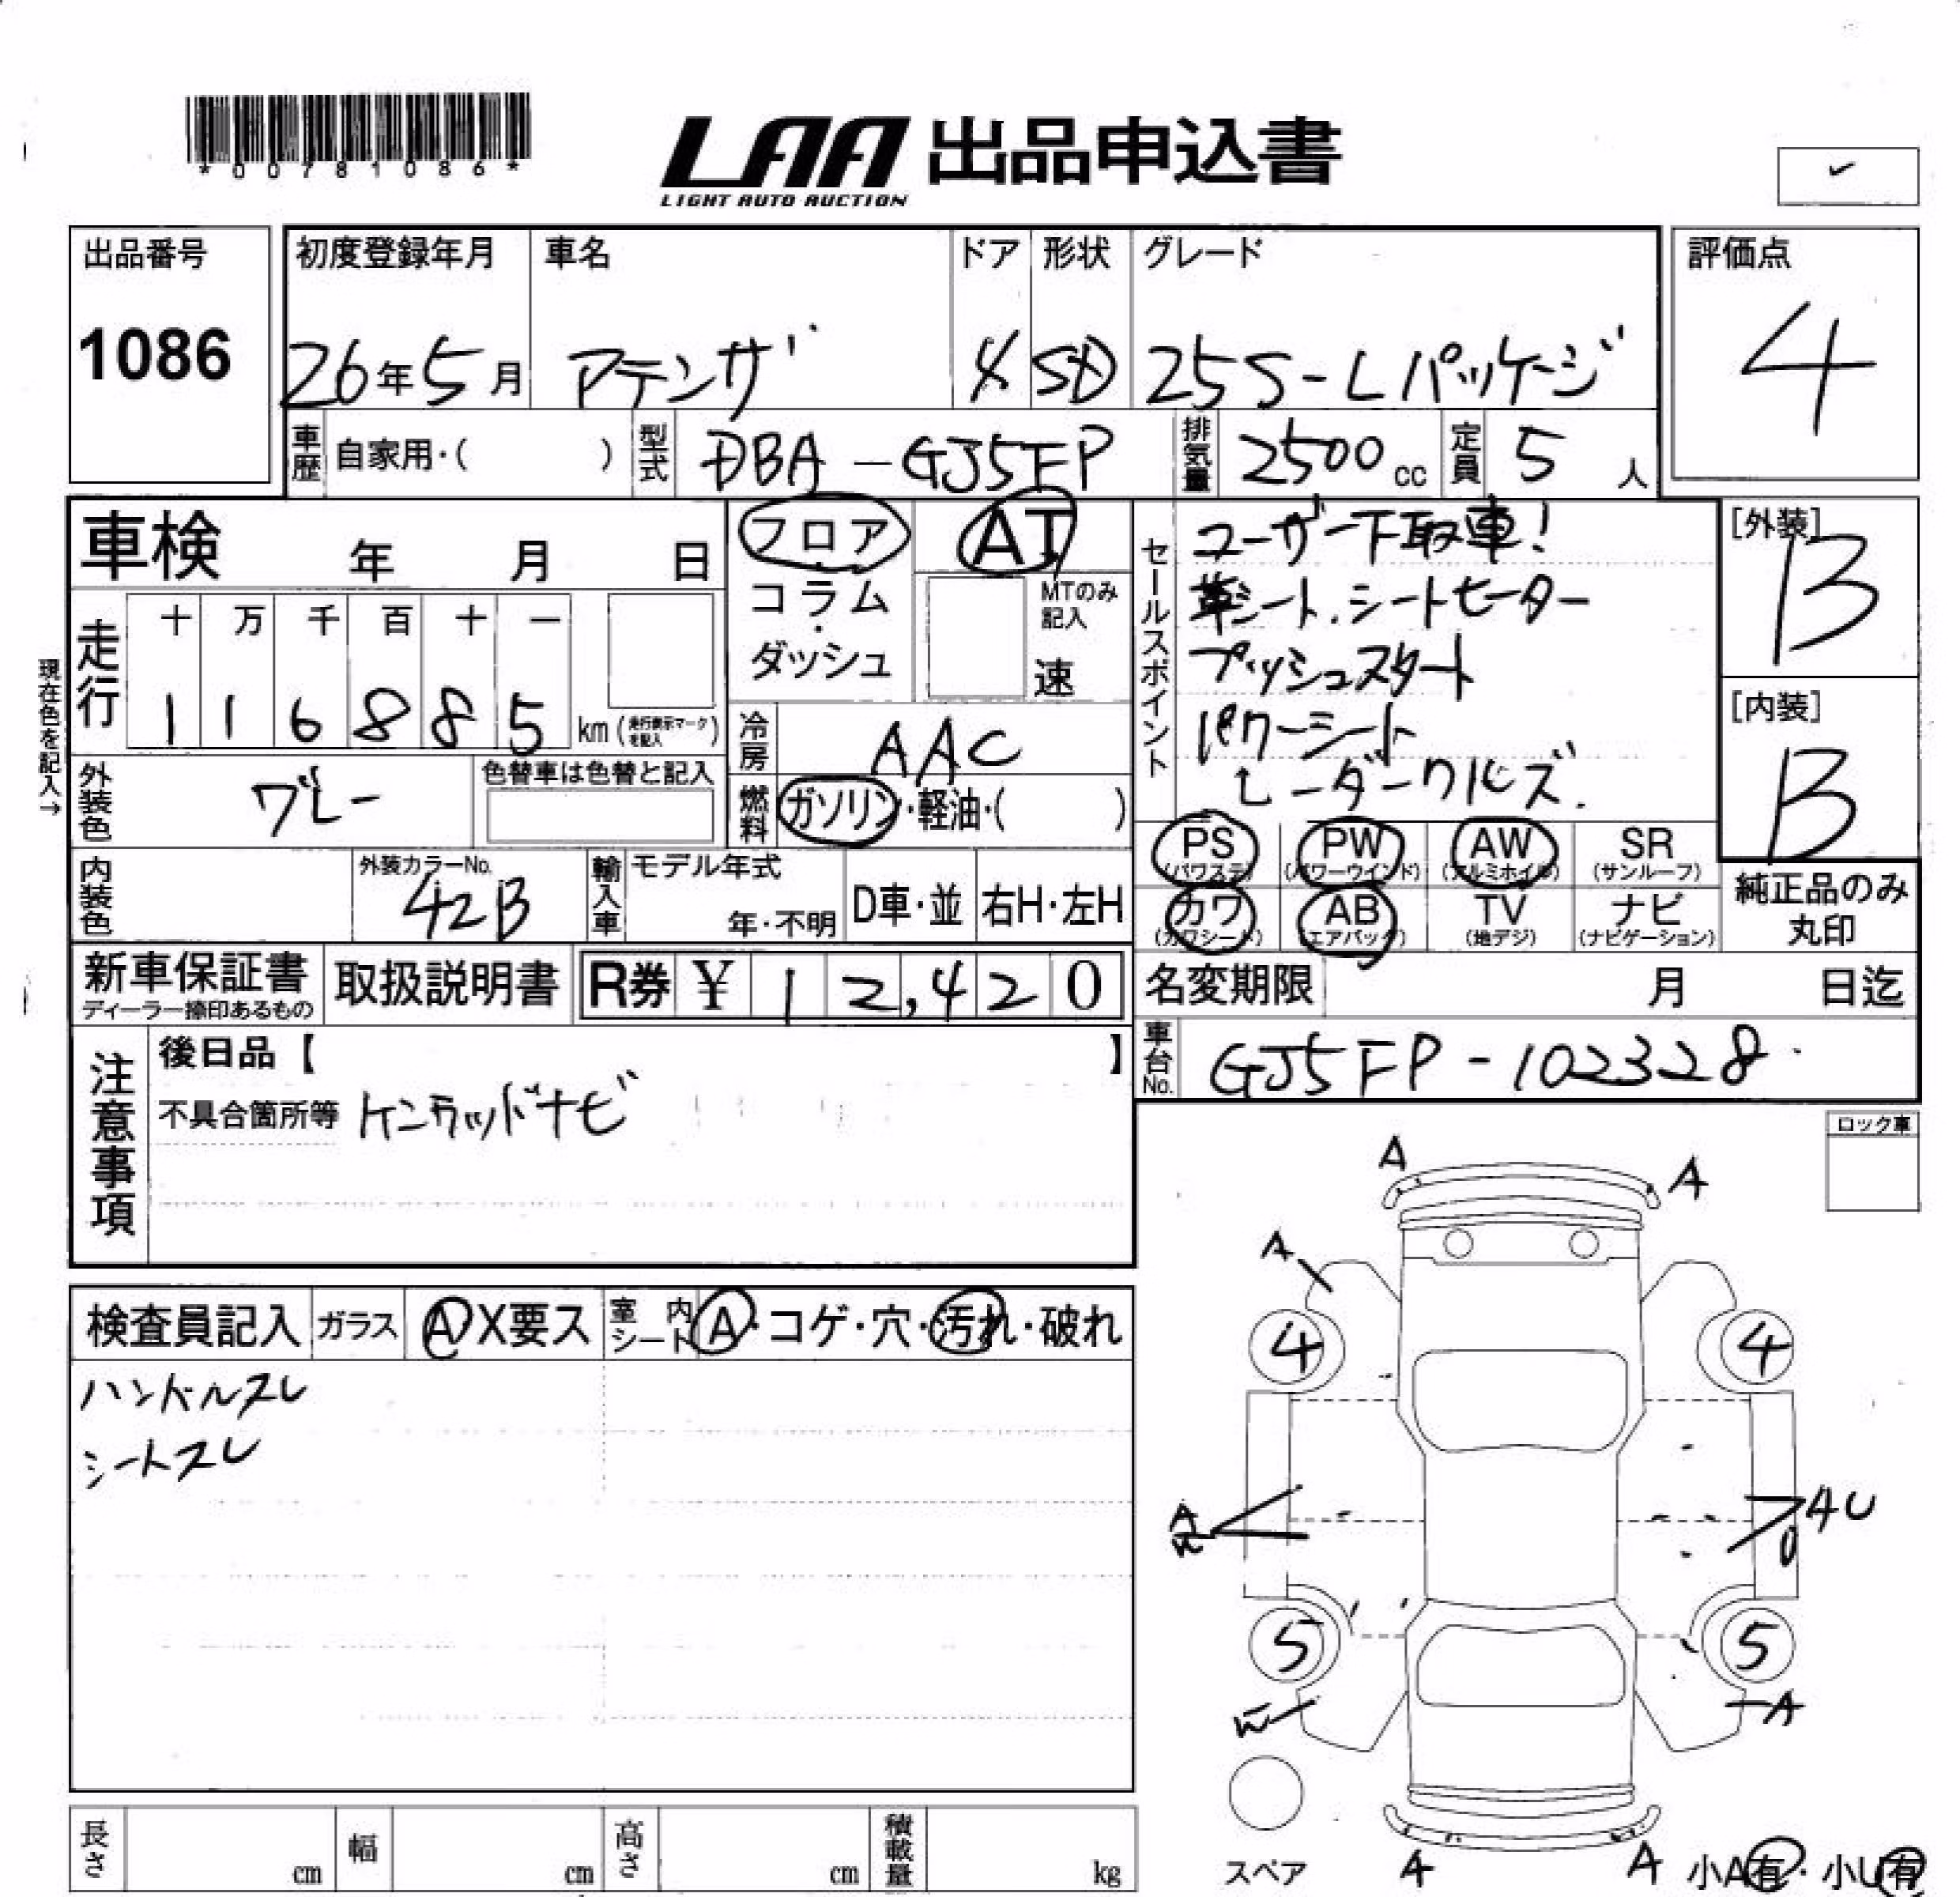 *00781086*
LAA 出品申込書
LIGHT AUTO AUCTION
出品番号 初度登録年月 車名 ドア 形状 グレード 評価点
1086 26年5月 アテンザ 4 SD 25S-Lパッケージ 4
車歴 自家用・( ) 型式 DBA-GJ5FP 排気量 2500cc 定員 5人
車検 年 月 日 フロア AT セールスポイント ユーザー下取車! [外装] B
コラム・ダッシュ MTのみ記入 速 革シート.シートヒーター
現在色を記入→
走行 十 万 千 百 十 一 プッシュスタート [内装] B
1 1 6 8 8 5 km (走行表示マークを記入) 冷房 AAC パワーシート
外装色 グレー 色替車は色替と記入 燃料 ガソリン・軽油・( ) レーダークルーズ.
PS (パワステ) PW (パワーウインド) AW (アルミホイル) SR (サンルーフ)
内装色 外装カラーNo. 42B 輸入車 モデル年式 年・不明 D車・並 右H・左H
カワ (カワシート) AB (エアバッグ) TV (地デジ) ナビ (ナビゲーション) 純正品のみ丸印
新車保証書 ディーラー捺印あるもの 取扱説明書 R券 ¥ 1 2,4 2 0 名変期限 月 日迄
車台No. GJ5FP-102328
注意事項 後日品【 】
不具合箇所等 ケンウッドナビ
ロック車
A A
A
検査員記入 ガラス A X要ス 室内シート A・コゲ・穴・汚れ・破れ
4 4
ハンドルスレ
シートスレ
A W A U
5 5
W A
長さ cm 幅 cm 高さ cm 積載量 kg
スペア A A 小A有・小U有